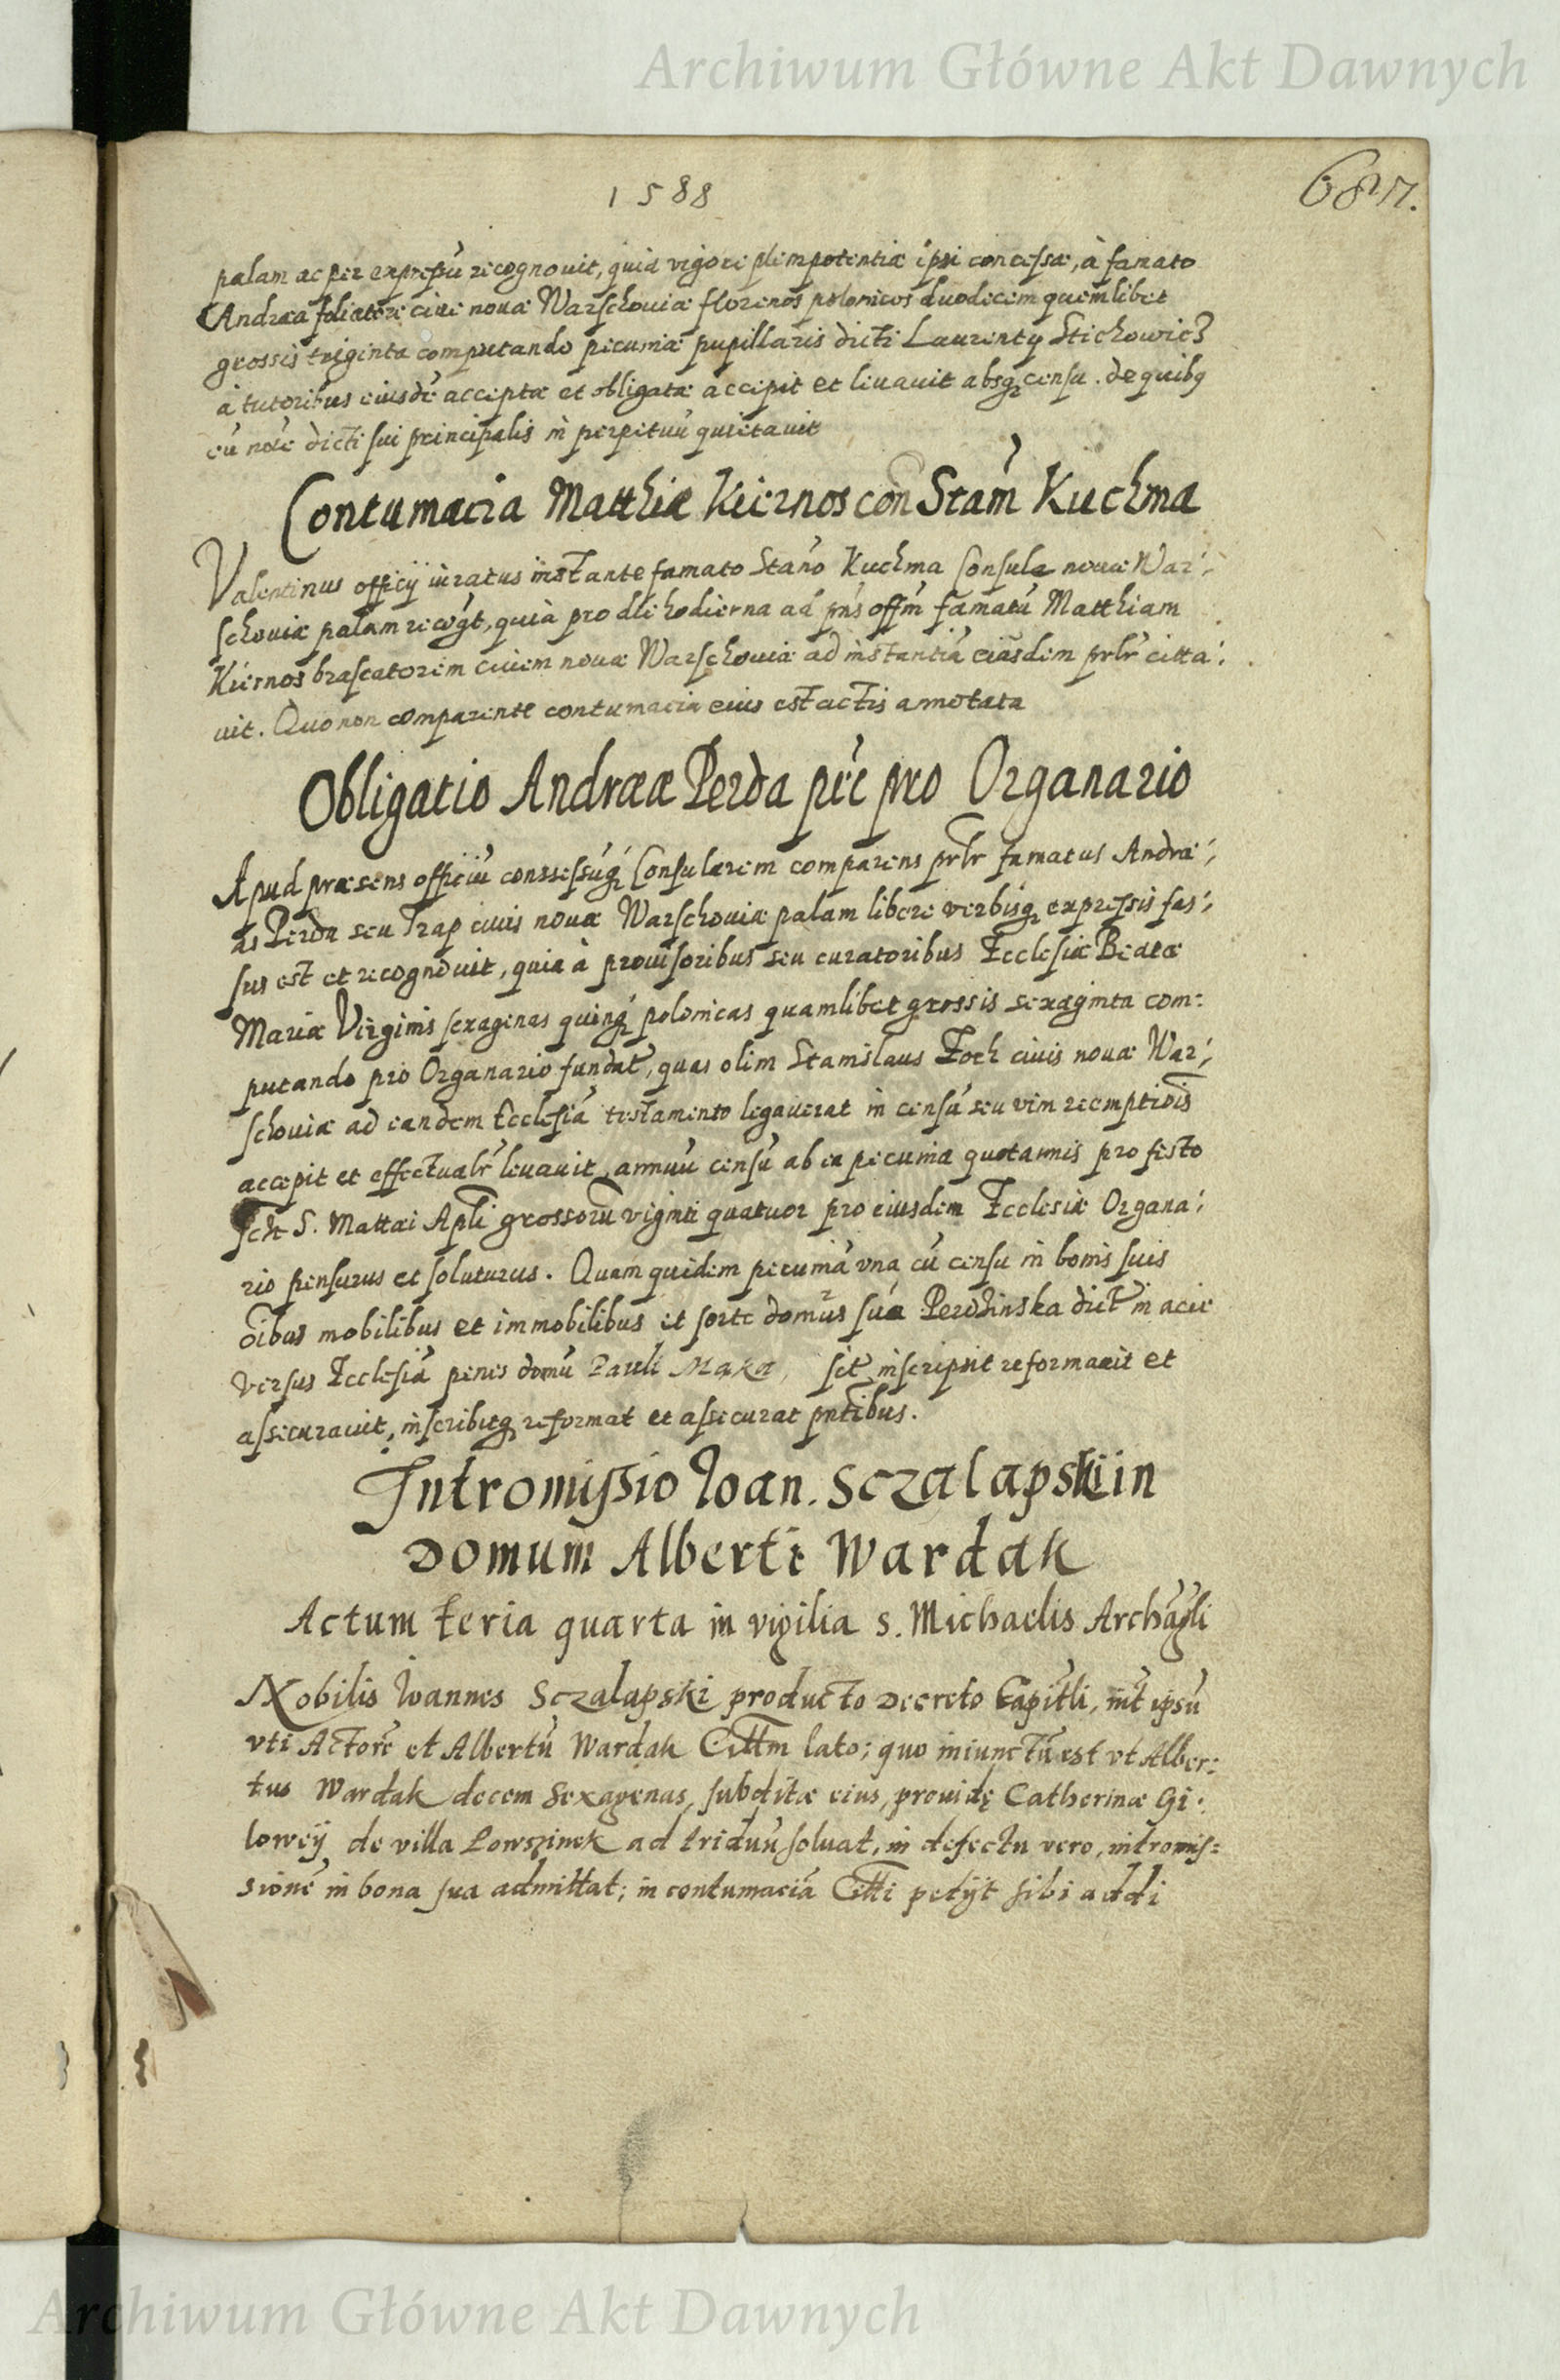 Archiwum Główne Akt Dawnych
1588
687.
palam ac per expressũ recognouit, quia vigore plenipotentiæ ipsi concessæ, à famato
Andrea foliatore ciue nouæ Warschouiæ florenos polonicos duodecem quemlibet
grossis triginta computando pecuniæ pupillaris dicti Laurentÿ Stichowicz
à tutoribus eiusdẽ acceptæ et obligatæ accepit et leuauit absq censu. de quibq
eũ noẽ dicti sui principalis in perpetuũ quietauit
Contumacia Matthiæ Kiernos con Stam̃ Kuchma
Valentinus officÿ iuratus instante famato Stañ̃o Kuchma Consule nouæ War:
schouiæ palam recogt, quia pro die hodierna ad pñs offm̃ famatũ Matthiam
Kiernos braseatorem ciuem nouæ Warschouiæ ad instantiã eiusdem prlr citta:
uit. Quo non comparente contumacia eius est actis annotata
Obligatio Andreæ Perda pẽc pro Organario
Apud præsens officiũ consessũq Consularem comparens prlr famatus Andre:
as Perda seu Trap ciuis nouæ Warschouiæ palam libere verbisq expressis fas:
sus est et recognouit, quia à prouisoribus seu curatoribus Ecclesiæ Beatæ
Mariæ Virginis sexagenas quinq polonicas quamlibet grossis sexaginta com:
putando pro Organario fundat, quas olim Stanislaus Zoch ciuis nouæ War:
schouiæ ad eandem Ecclesiã testamento legauerat in censũ seu vim reemptiõis
accepit et effectualr leuauit, annuũ censũ ab ea pecunia quotannis pro festo
S. Mattæi Apli grossorũ viginti quatuor pro eiusdem Ecclesiæ Organa:
rio pensurus et soluturus. Quam quidem pecuniã vna cũ censu in bonis suis
oĩbus mobilibus et immobilibus et sorte domus suæ Perdzinska dict in acie
versus Ecclesiã penes domũ Pauli Maka, inscripsit reformauit et
assecurauit, inscribitq reformat et assecurat pñtibus.
Intromissio Ioan. Sczalapski in
Domum Alberti Wardak
Actum feria quarta in vigilia S. Michaelis Archãgli
Nobilis Ioannes Sczalapski producto Decreto Capitli, int ipsũ
vti Actorẽ et Albertũ Wardak Cittm lato; quo iniunctũ est vt Alber:
tus Wardak decem sexagenas, subditæ eius, prouidę Catherinæ Gi:
loweÿ de villa Lowszinek ad triduũ soluat, in defectu vero, intromis:
sionẽ in bona sua admittat; in contumaciã Citti petÿt sibi addi
Archiwum Główne Akt Dawnych